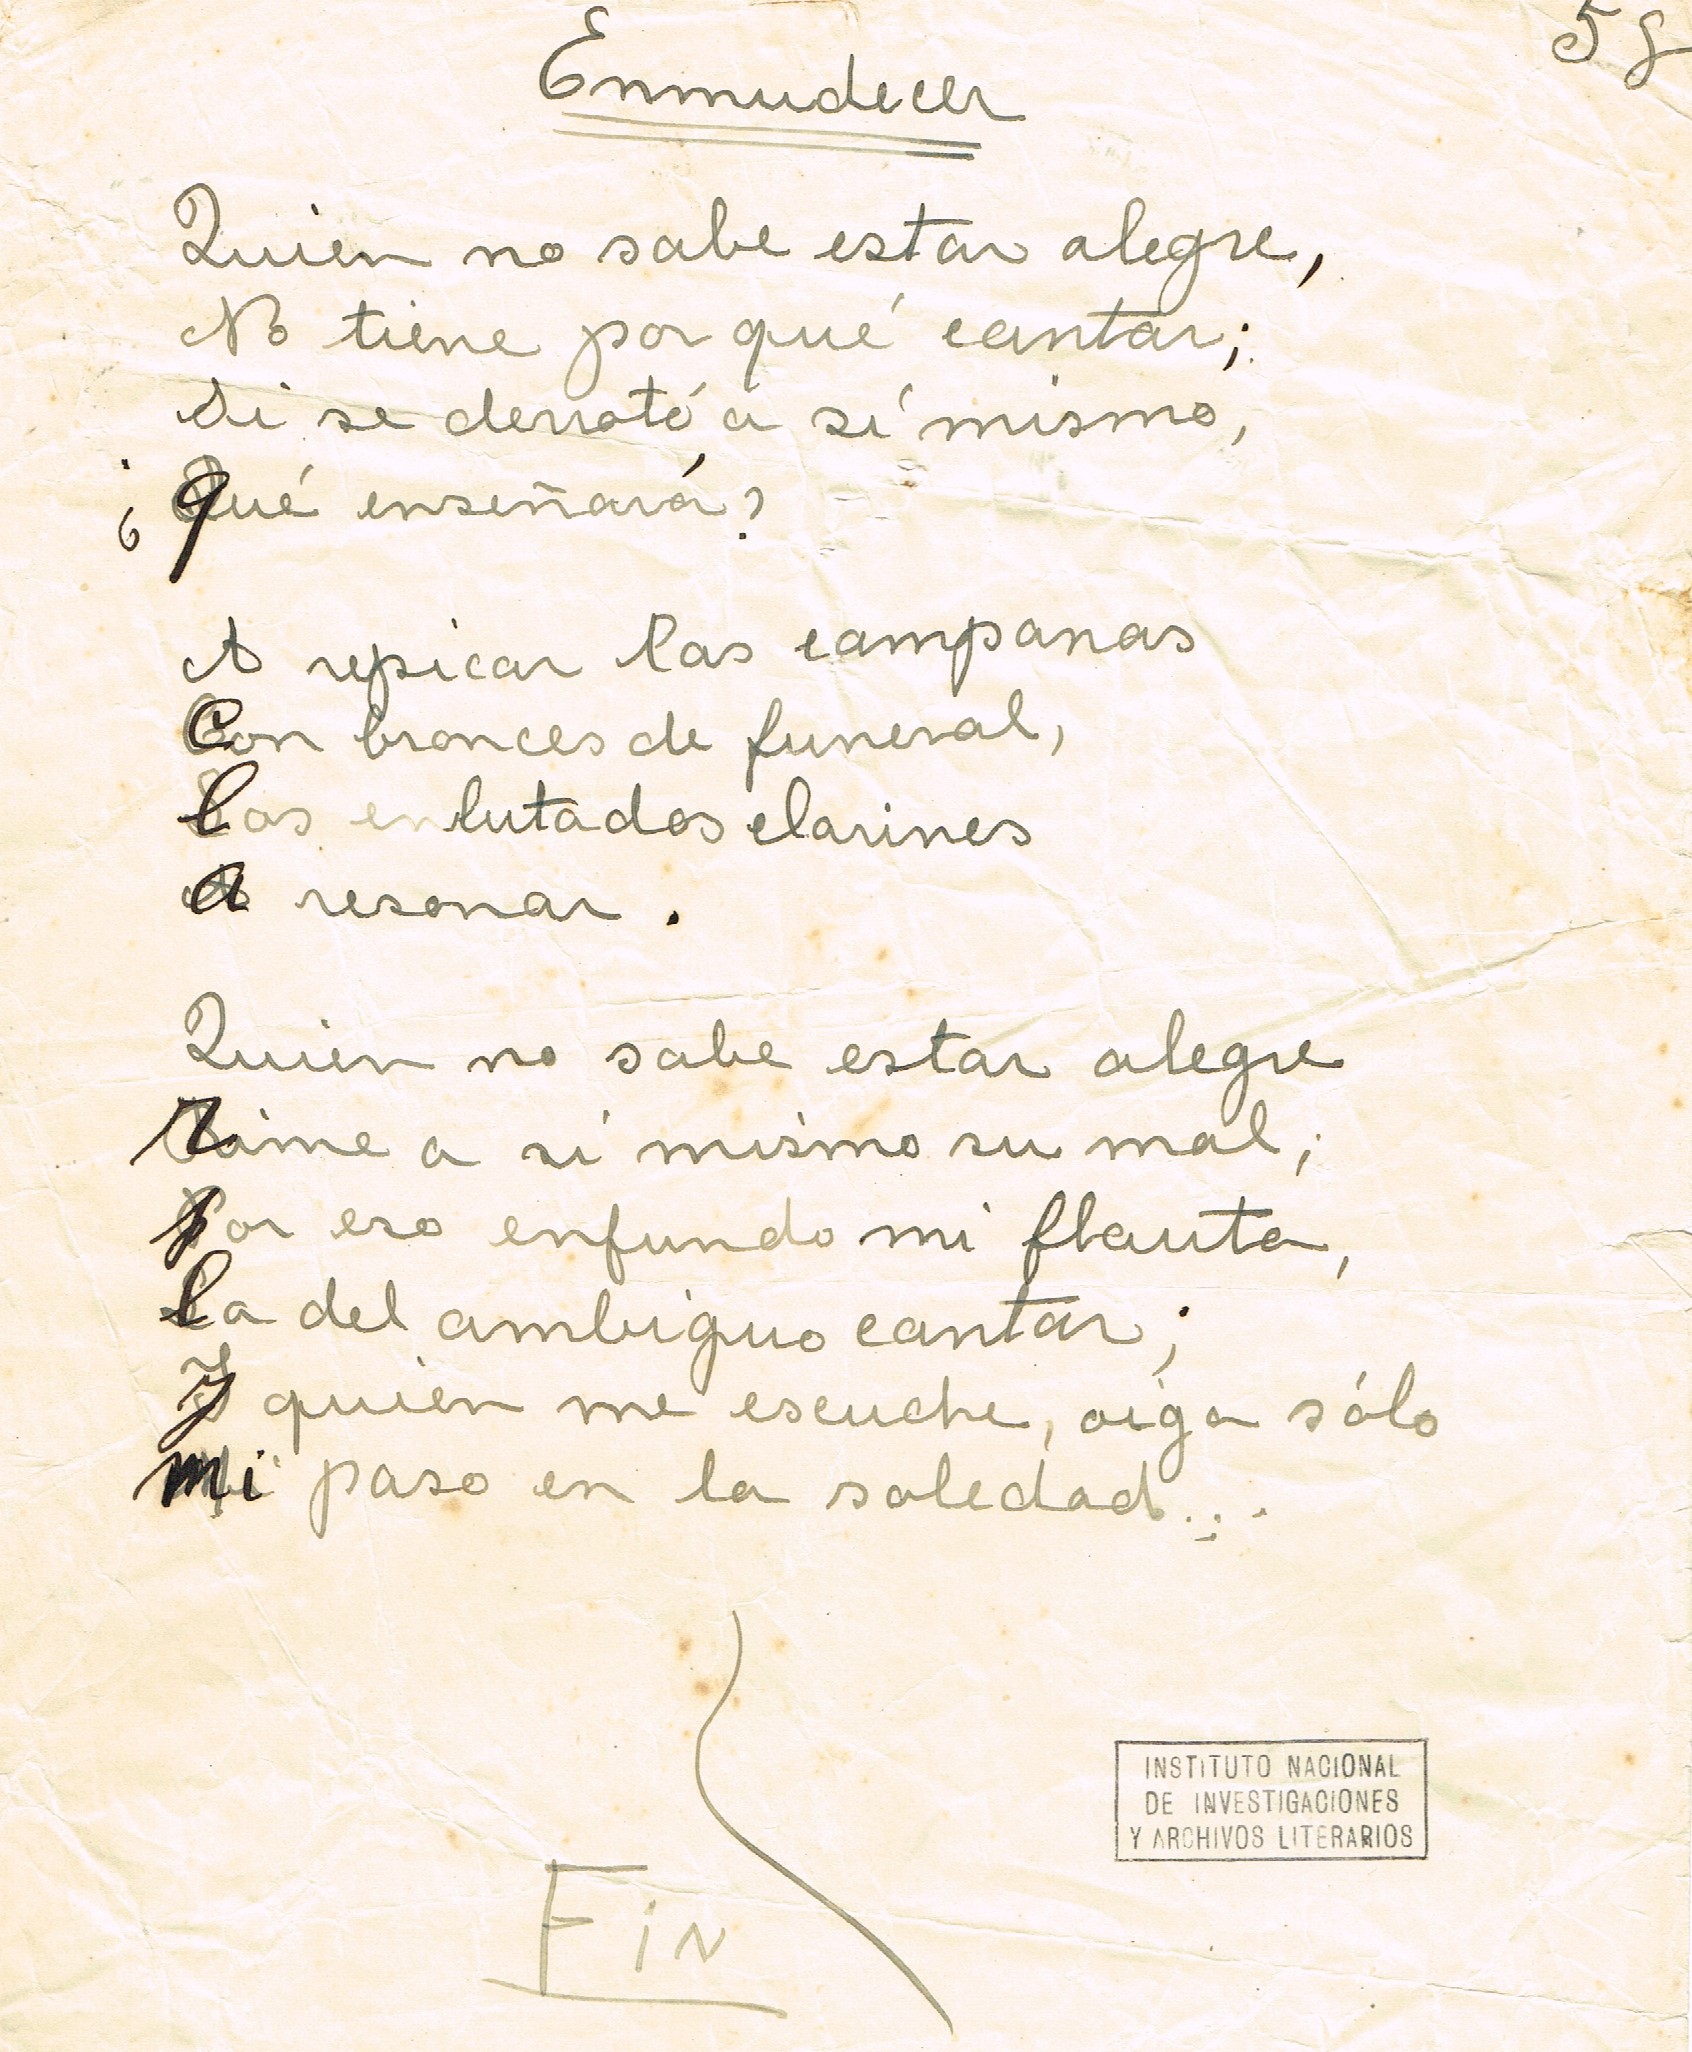 58
Enmudecer
Quien no sabe estar alegre,
No tiene por qué cantar;
Si se derrotó a sí mismo,
¿qué enseñará?
A repicar las campanas
con bronces de funeral,
los enlutados clarines
a resonar.
Quien no sabe estar alegre
rime a sí mismo su mal;
por eso enfundo mi flauta,
la del ambiguo cantar;
y quien me escuche, oiga sólo
mi paso en la soledad...
Fin
INSTITUTO NACIONAL
DE INVESTIGACIONES
Y ARCHIVOS LITERARIOS